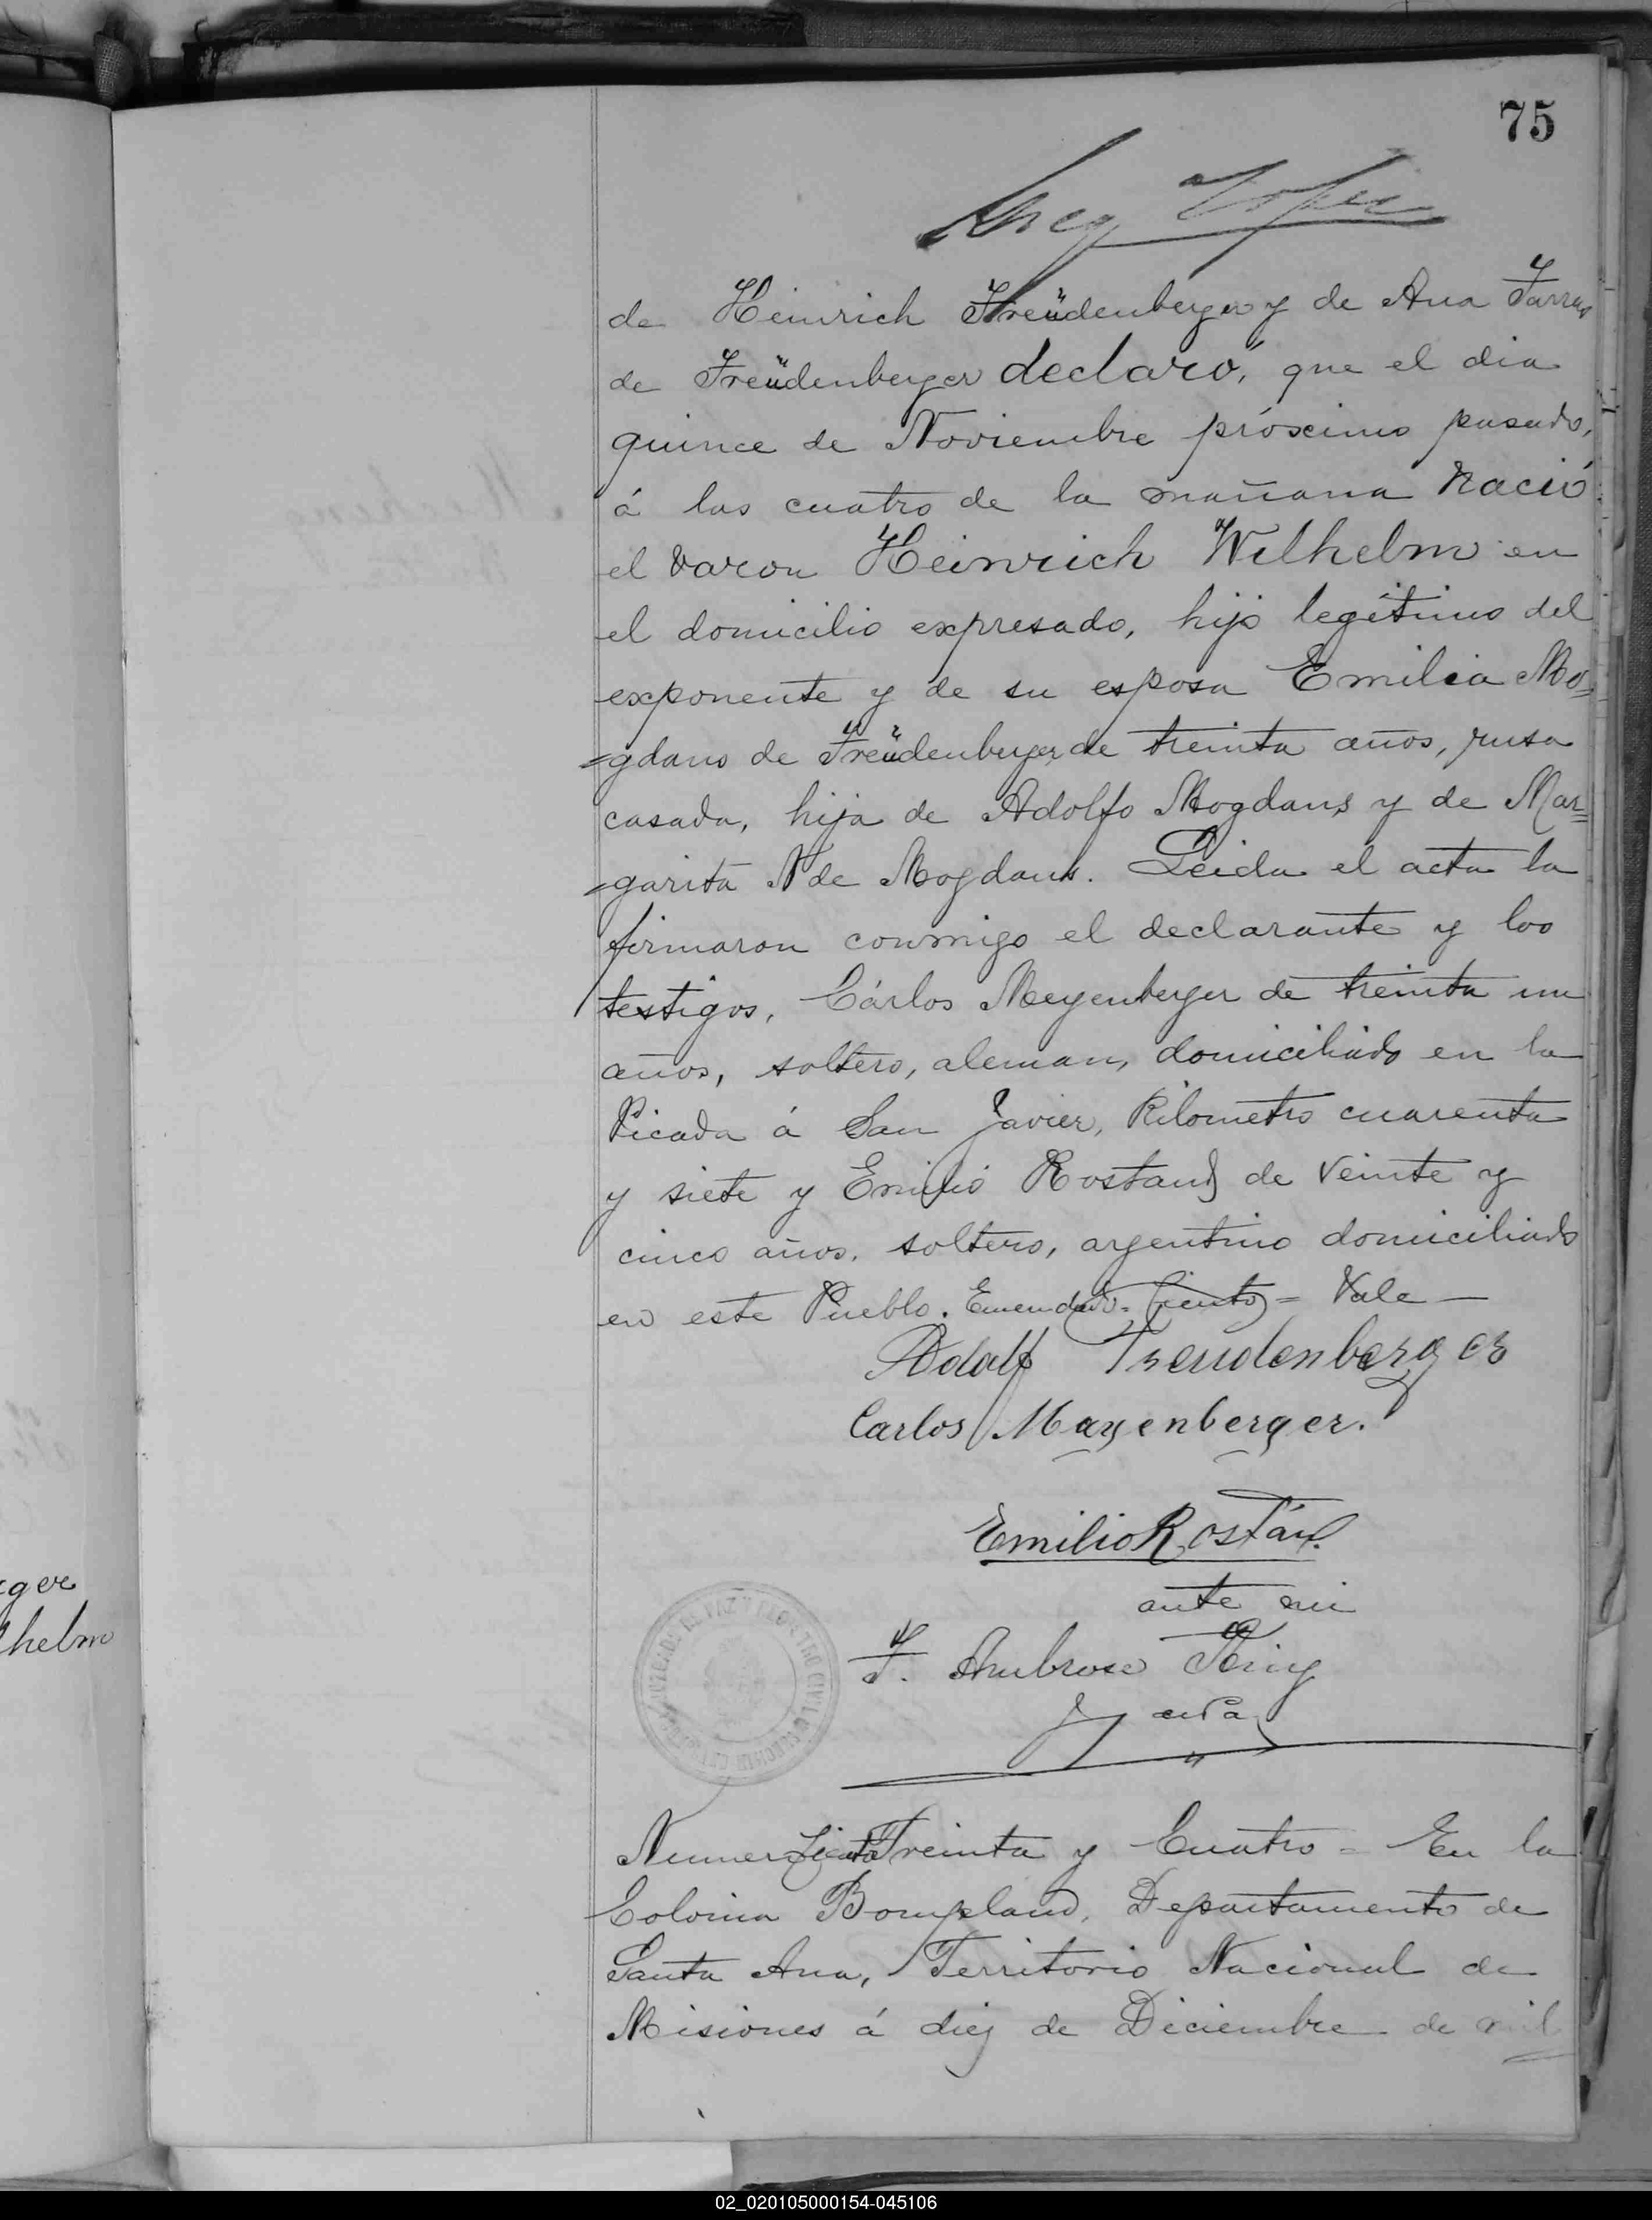 75
de Heinrich Freüdenberger y de Ana Farras
de Freüdenberger declaró, que el dia
quince de Noviembre próximo pasado,
á las cuatro de la mañana nació
el varon Heinrich Wilhelm en
el domicilio expresado, hijo legítimo del
exponente y de su esposa Emilia Mo=
=gdans de Freüdenberger, de treinta años, rusa
casada, hija de Adolfo Mogdans y de Mar=
=garita N de Mogdans. Leida el acta la
firmaron conmigo el declarante y los
testigos, Cárlos Meyenberger de treinta un
años, soltero, aleman, domiciliado en la
Picada á San Javier, Kilometro cuarenta
y siete y Emilio Rostand de veinte y
cinco años, soltero, argentino domiciliado
en este Pueblo. Emendado = Ciento = Vale —
Adolf Freudenberger
Carlos Mayenberger.
Emilio Rostán.
ante mi
F. Ambrose King
JUZGADO DE PAZ Y REGISTRO CIVIL
Numero Ciento Treinta y Cuatro = En la
Colonia Bompland, Departamento de
Santa Ana, Territorio Nacional de
Misiones á diez de Diciembre de mil
ger
lhelm
02_020105000154-045106